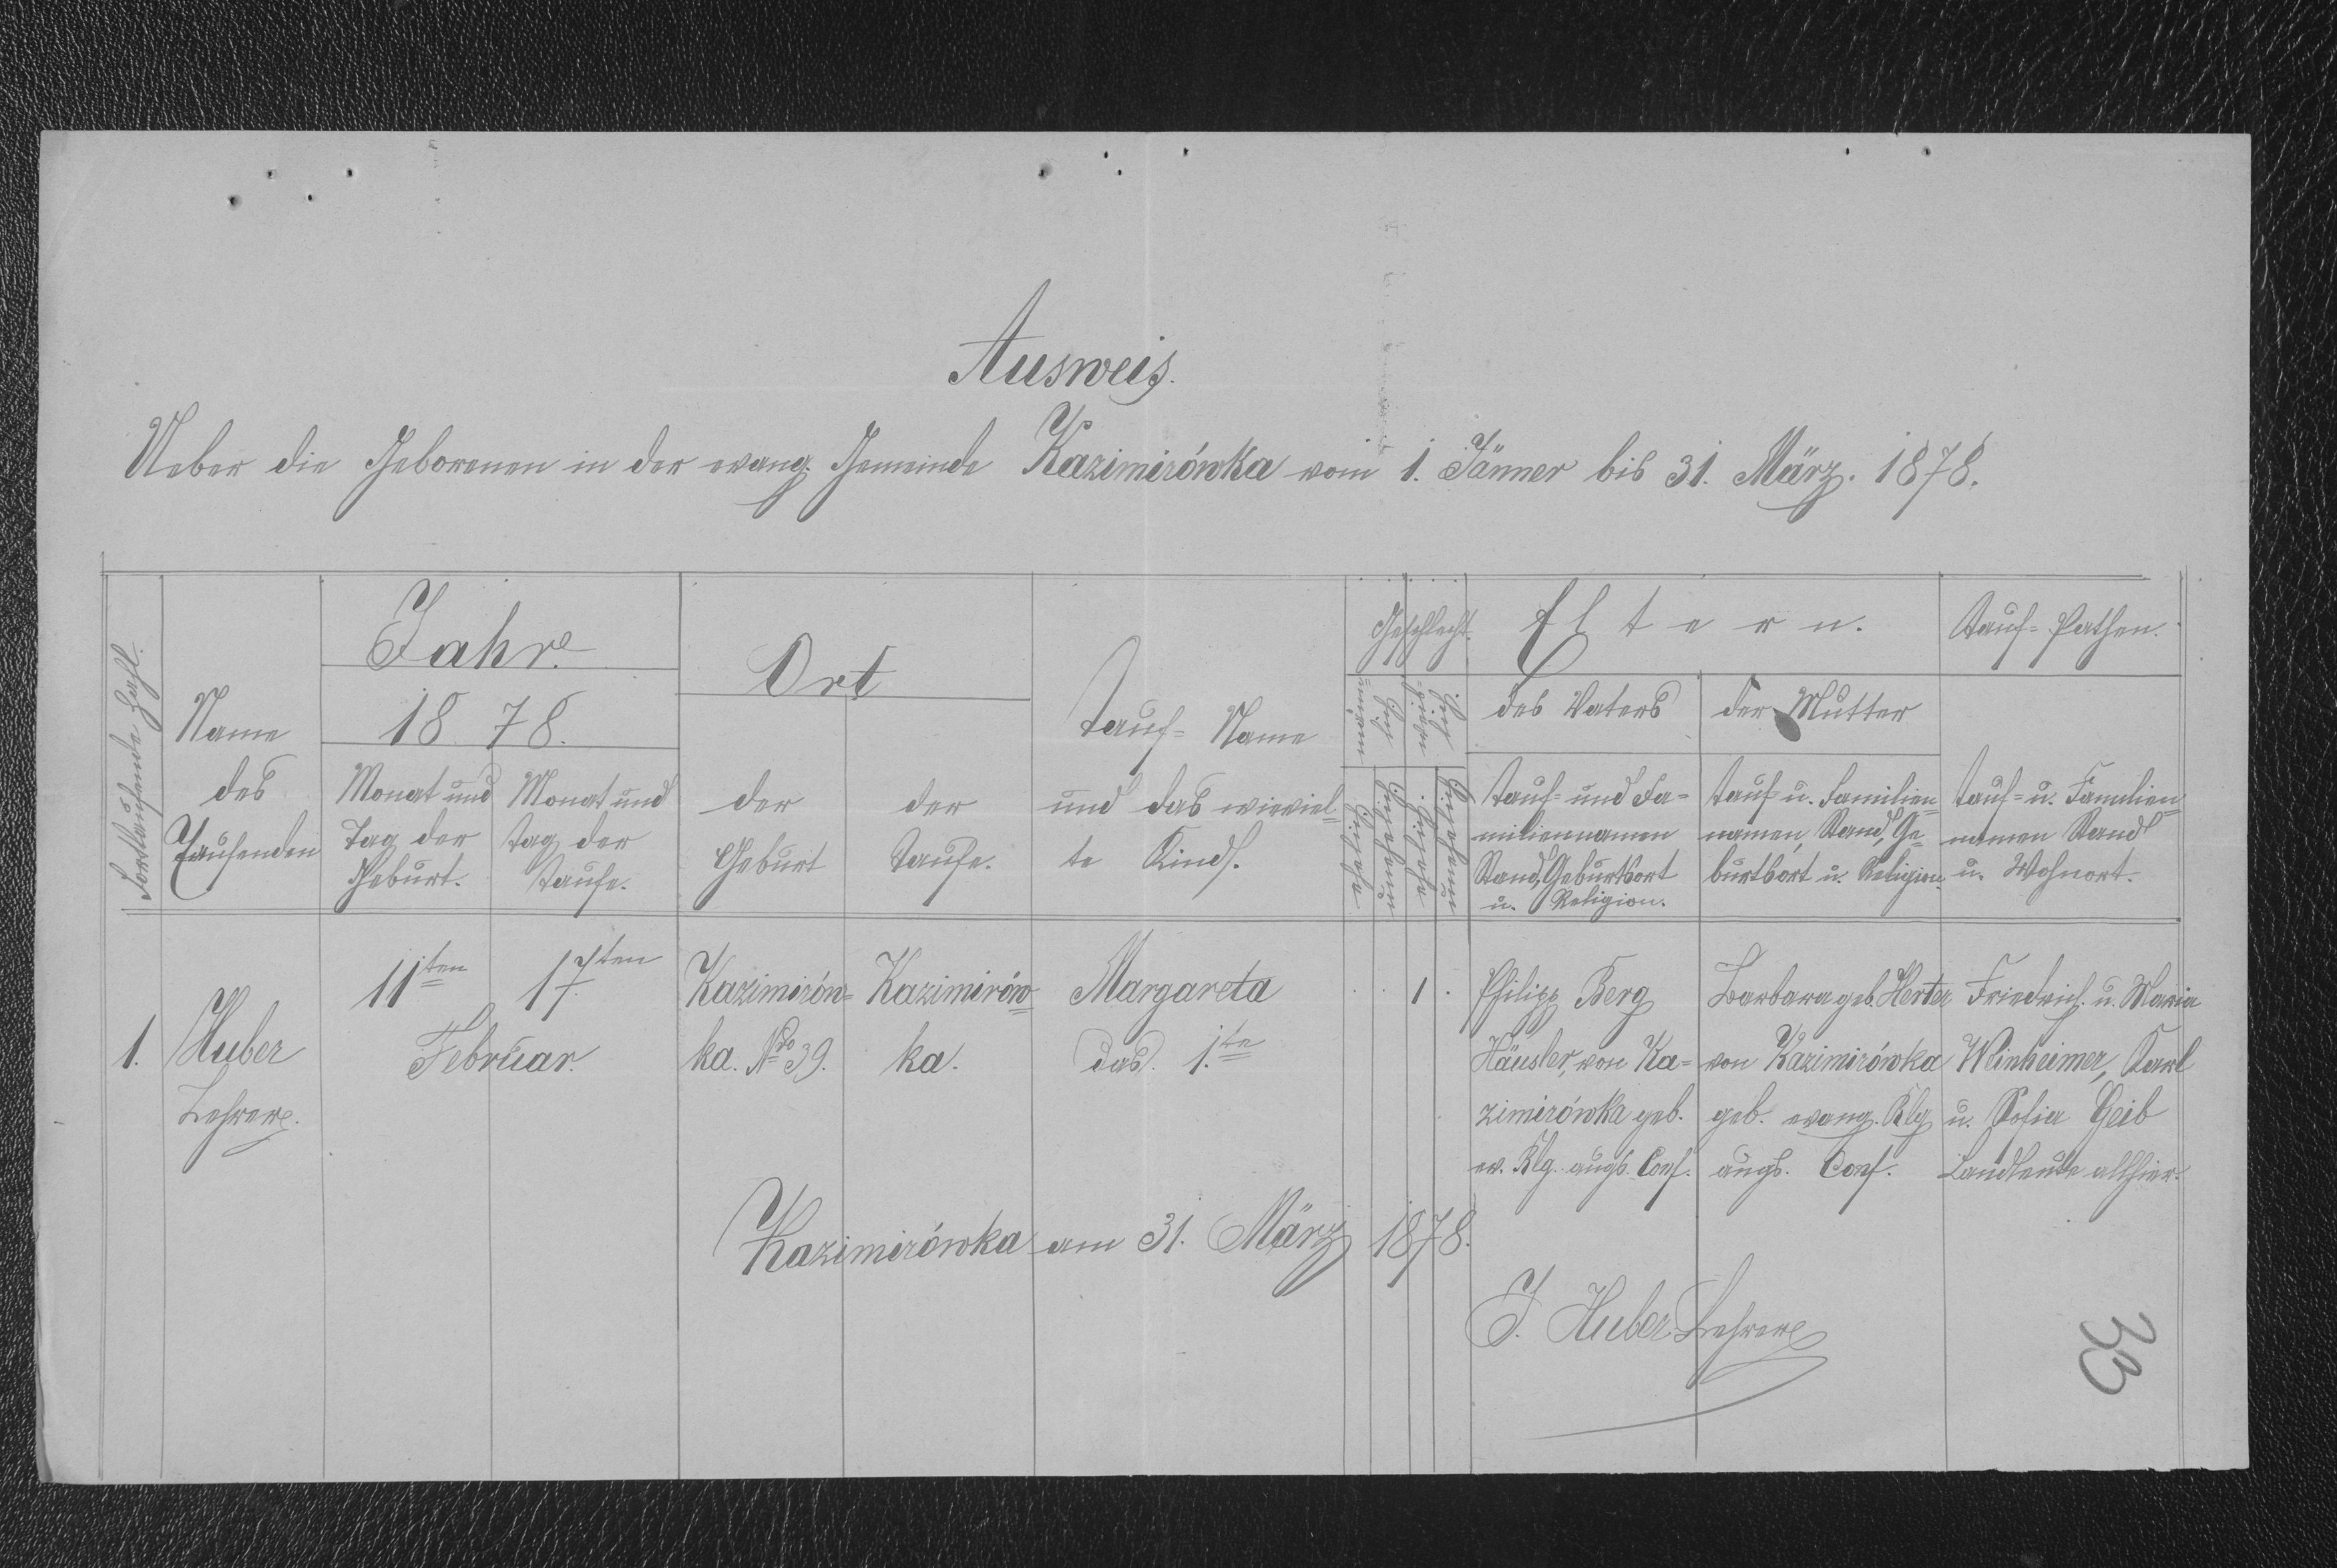 Ausweis.
Ueber die Geborenen in der evang. Gemeinde Kazimirówka vom 1. Jänner bis 31. März. 1878.
Fortlaufende Zahl.
Name
des
Taufenden
Jahr.
18 78.
Monat und
Tag der
Geburt.
Monat und
Tag der
Taufe.
Ort
der
Geburt
der
Taufe.
Tauf- Name
und das wieviel=
te Kind.
Geschlecht.
Eltern.
des Vaters
Tauf- und Fa=
miliennamen
Stand, Geburtsort
u. Religion.
der Mutter
Tauf- u. Familien=
namen, Stand, Ge=
burtsort u. Religion.
Tauf- Pathen.
Tauf- u. Familien=
namen Stand
u. Wohnort.
1.
Huber
Lehrer.
11ten
17ten
Februar.
Kazimirów=
ka. Nro 39.
Kazimirów=
ka.
Margareta
das. 1.te
1
Philipp Berg
Häusler, von Ka=
zimirówka geb.
ev. Rlg. augs. Conf.
Barbara geb. Herter
von Kazimirówka
geb. evang. Rlg
augs. Conf.
Friedrich u. Maria
Weinheimer, Karl
u. Sofia Geib
Landleute allhier.
Kazimirówka am 31. März 1878.
J. Huber Lehrer